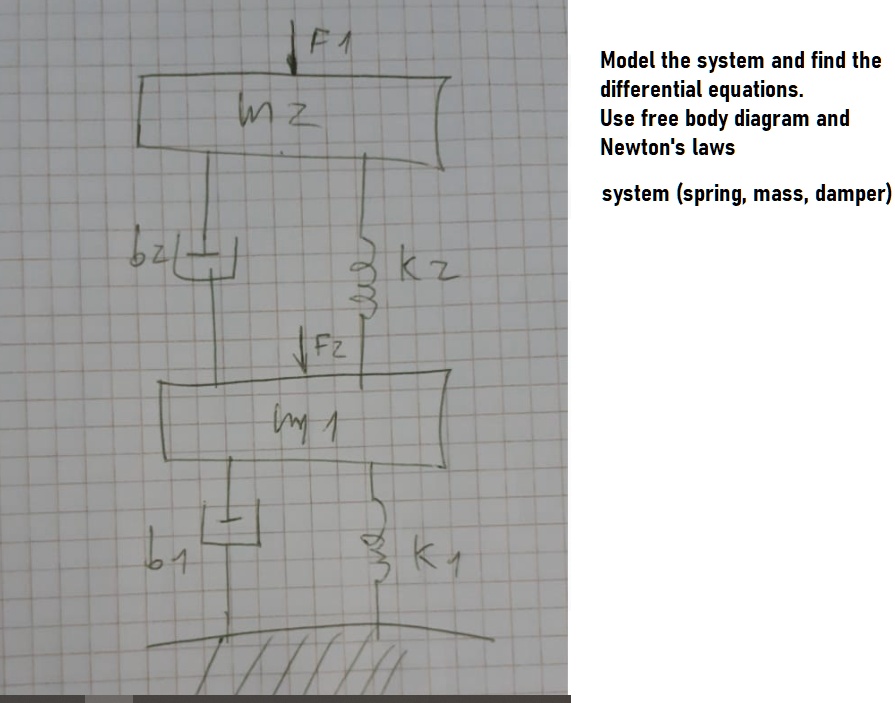 F1
m2
b2
K2
F2
m1
b1
K1
Model the system and find the
differential equations.
Use free body diagram and
Newton's laws
system (spring, mass, damper)